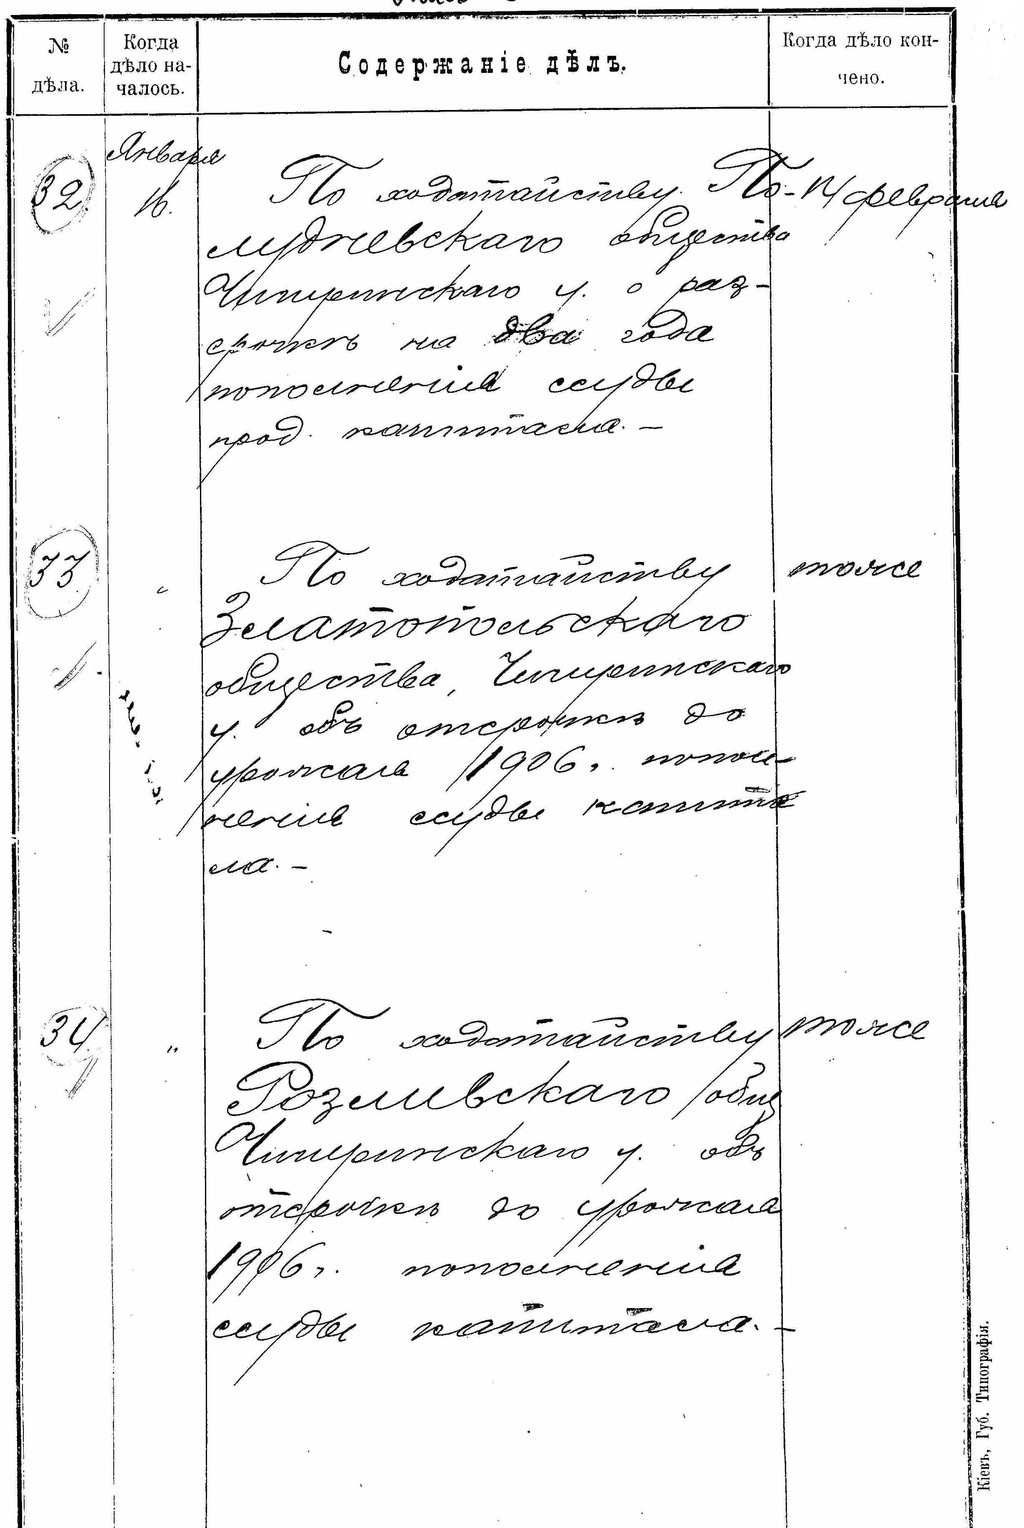 № дѣла.
Когда дѣло началось.
Содержаніе дѣлъ.
Когда дѣло кончено.
32
Января
16.
По ходатайству По-
лудневскаго общества
Чигиринскаго у. о раз-
срочкѣ на два года
пополненія ссуды
прод. капитала. —
14 февраля
33
"
По ходатайству
Златопольскаго
общества, Чигиринскаго
у. объ отсрочкѣ до
урожая 1906 г. попол-
ненія ссуды капита
ла. —
тоже
34
"
По ходатайству
Розливскаго общ
Чигиринскаго у. объ
отсрочкѣ до урожая
1906 г. пополненія
ссуды капитала. —
тоже
Кіевъ, Губ. Типографія.